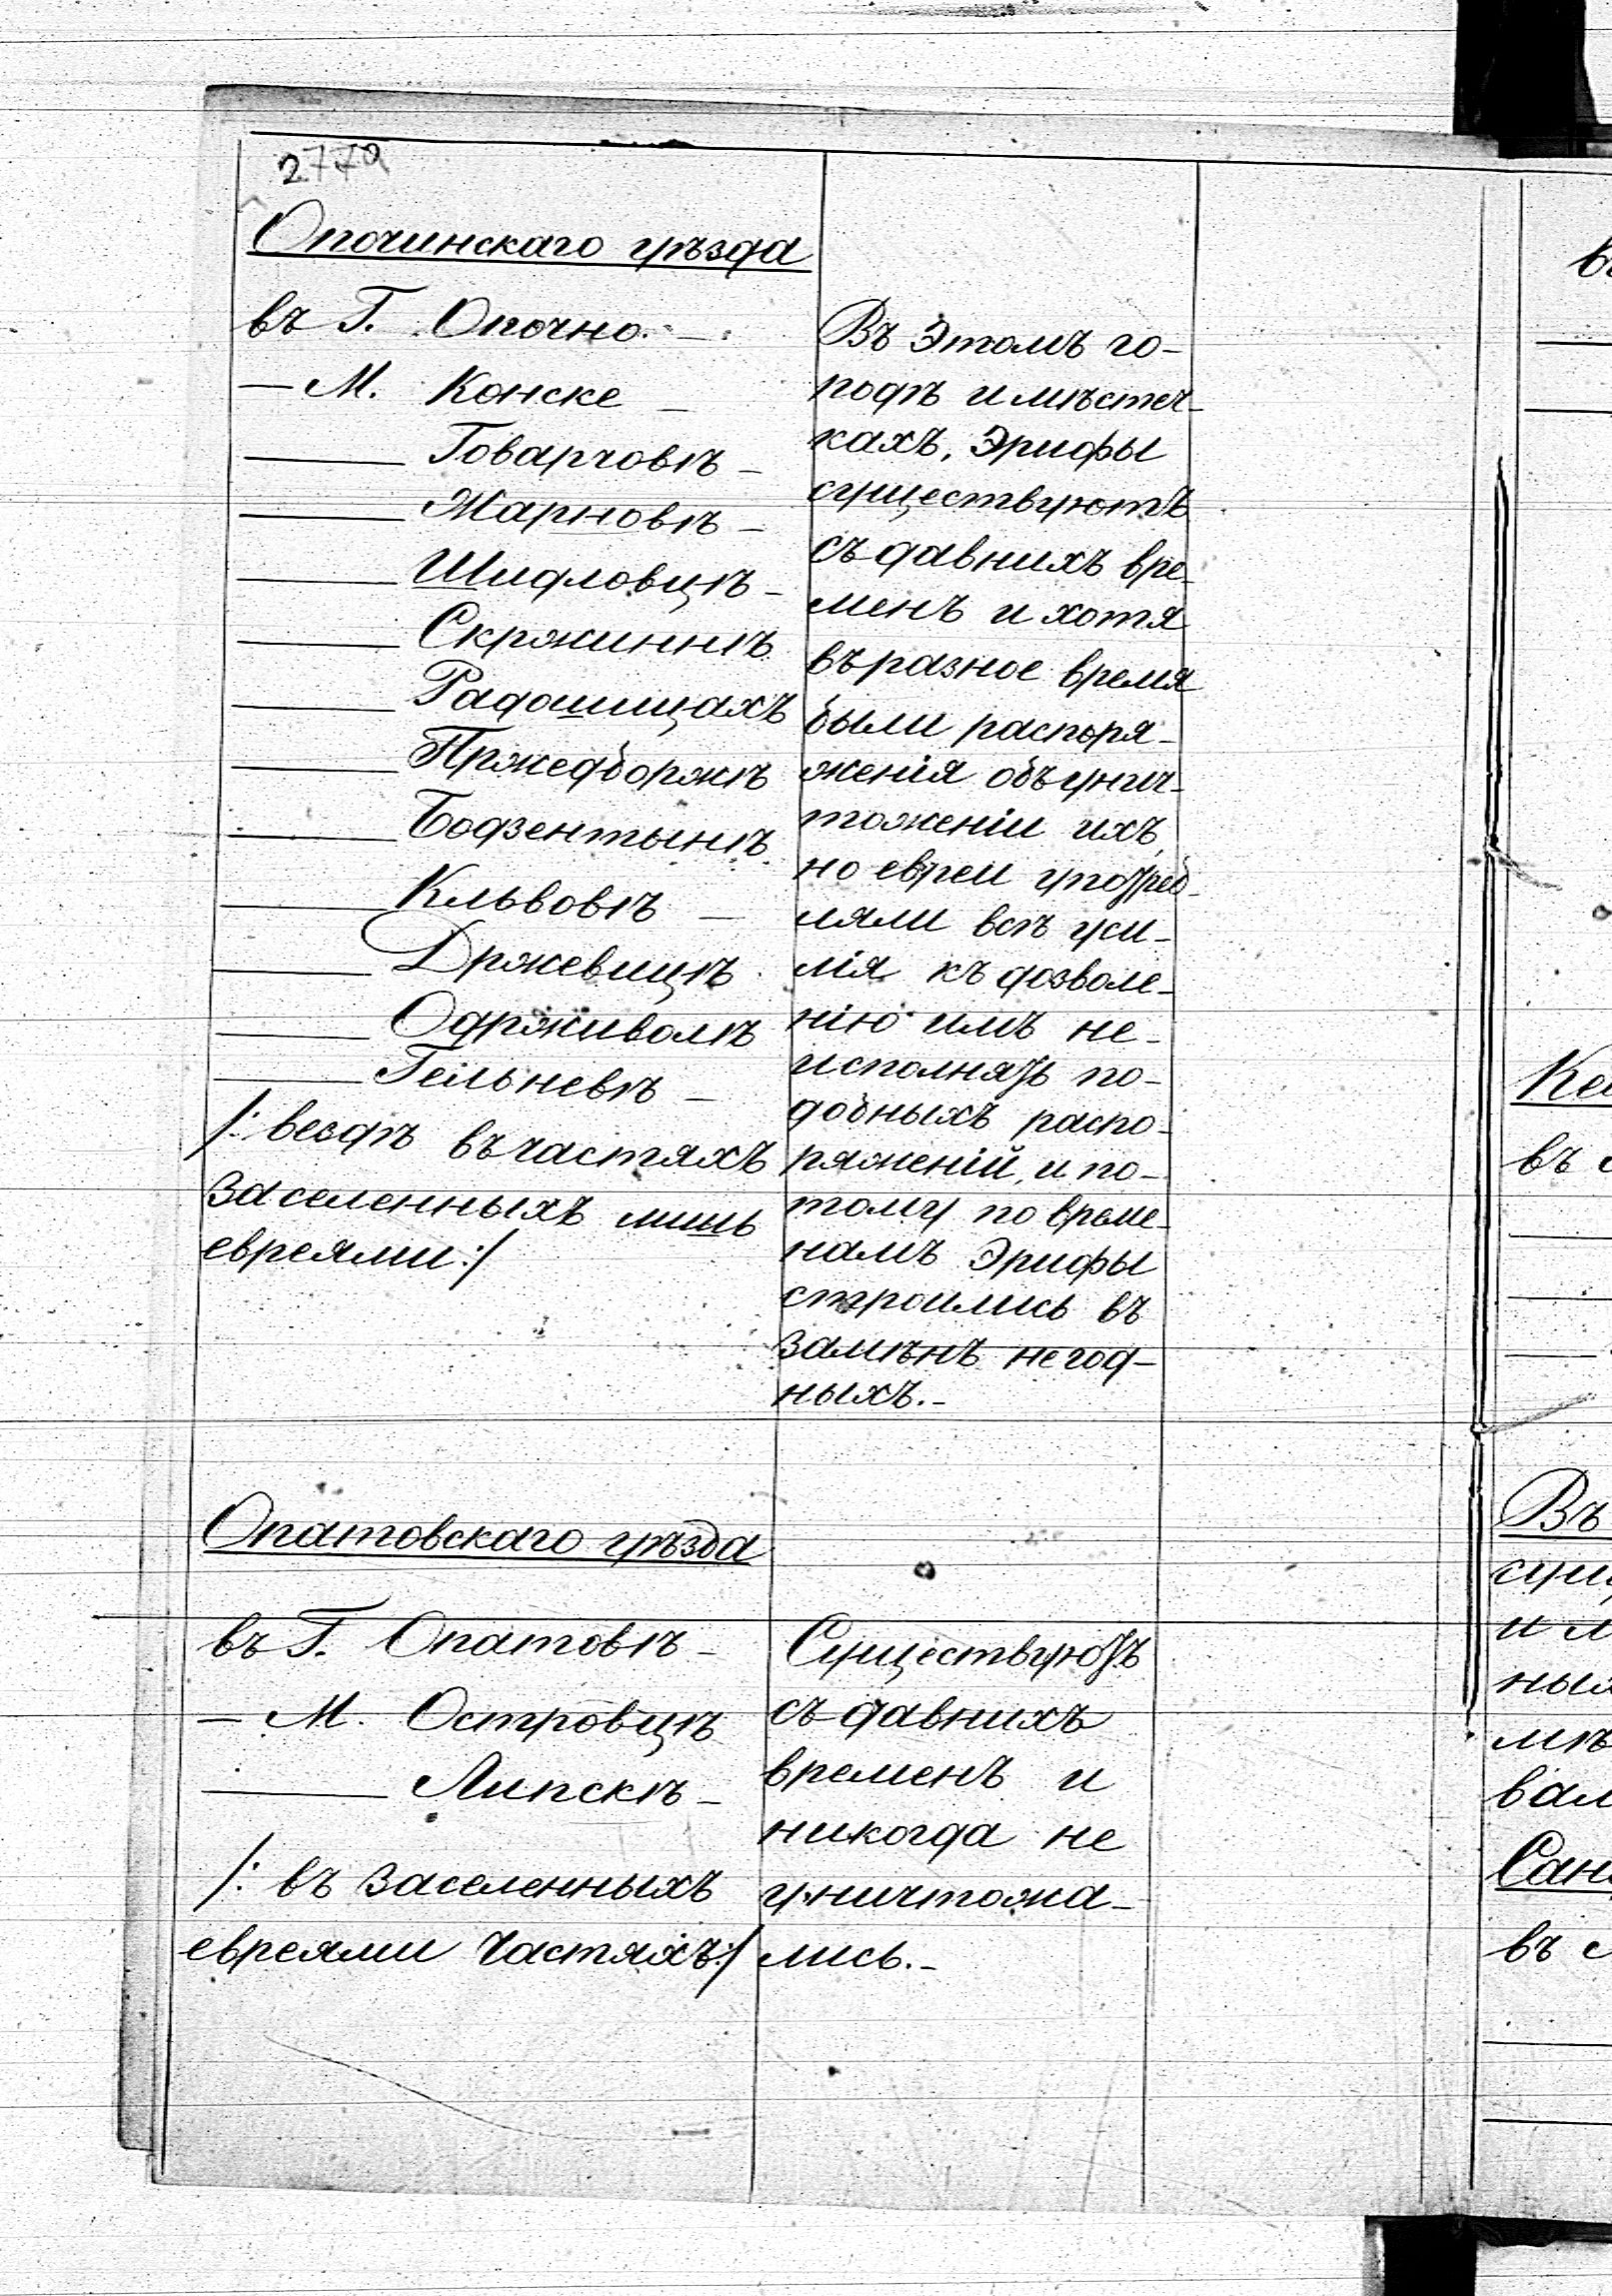 277а
Опочинскаго уѣзда
въ Г. Опочно. –
— М. Конске –
——— Говарчовѣ –
——— Жарновѣ –
——— Шидловцѣ –
——— Скржиннѣ
——— Радошицахъ
——— Пржедборжѣ
——— Бодзентынѣ
——— Кльвовѣ –
——— Држевицѣ
——— Одрживолѣ
——— Гельневѣ –
/: вездѣ въ частяхъ
заселенныхъ лишь
евреями :/
Въ этомъ го-
родѣ и мѣстеч-
кахъ, Эрифы
существуютъ
съ давнихъ вре-
менъ и хотя
въ разное время
были распоря-
женія объ унич-
тоженіи ихъ,
но евреи употреб-
ляли всѣ уси-
лія къ дозволе-
нію имъ не-
исполнять по-
добныхъ распо-
ряженій, и по-
тому по време-
намъ Эрифы
строились въ
замѣнъ негод-
ныхъ. –
Опатовскаго уѣзда
въ Г. Опатовѣ –
— М. Островцѣ
——— Липскѣ –
/: въ заселенныхъ
евреями частяхъ :/
Существуютъ
съ давнихъ
временъ и
никогда не
уничтожа-
лись. –
Въ
въ
Въ
въ